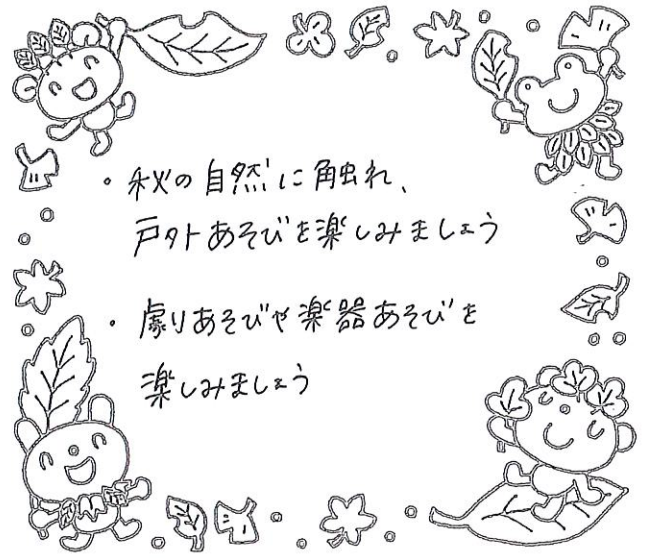 ・秋の自然に触れ、
戸外あそびを楽しみましょう
・劇あそびや楽器あそびを
楽しみましょう